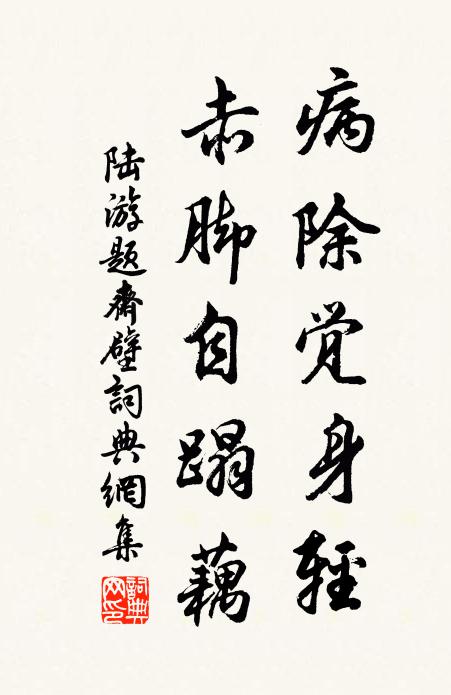 病除觉身輕
赤脚自蹋藕
陆游题齋壁詞典網集
詞典网印